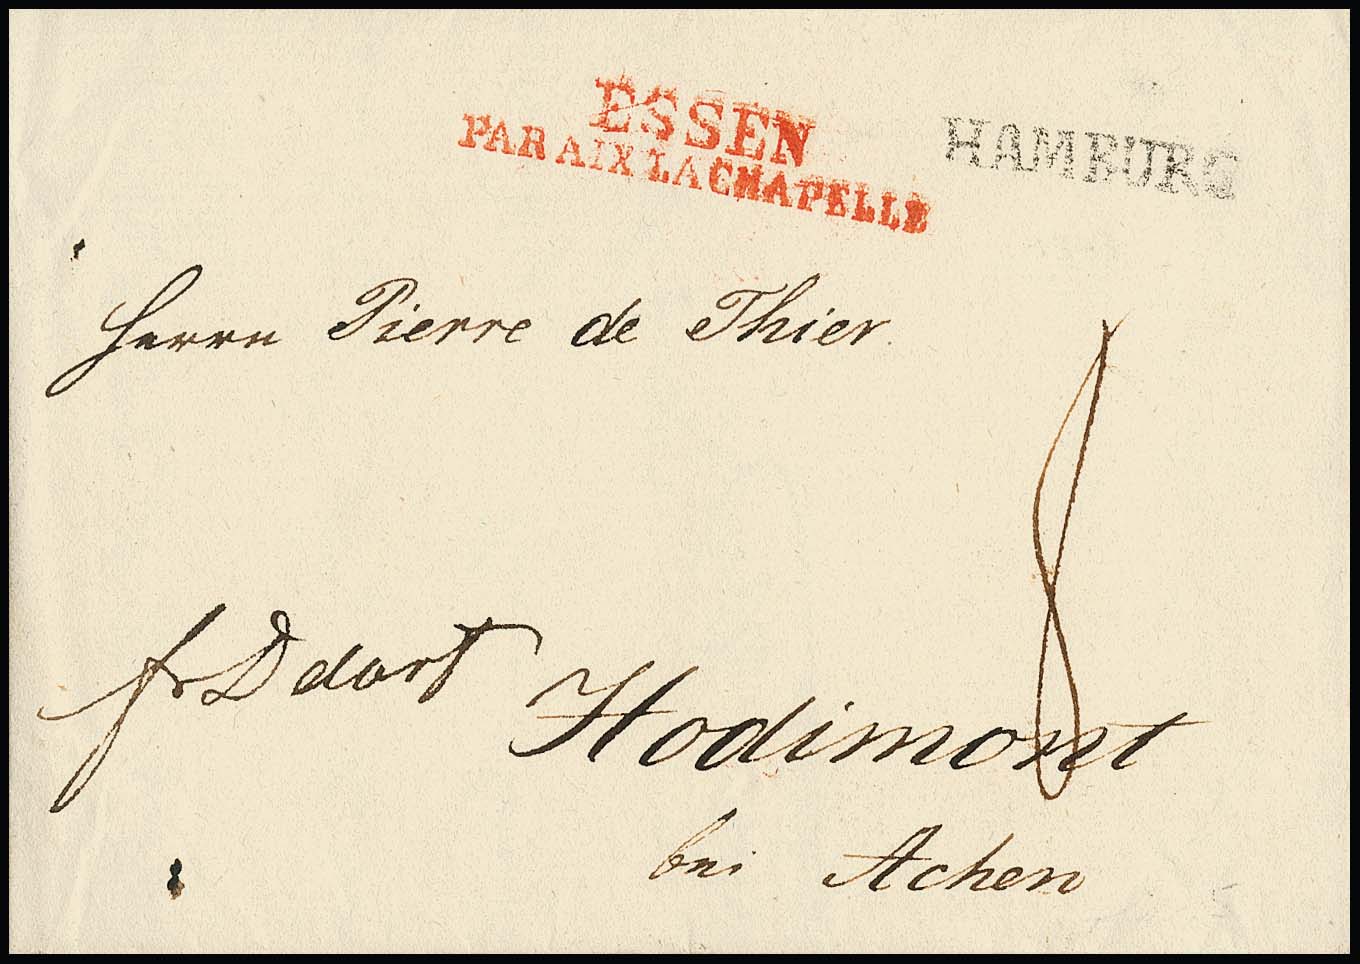 ESSEN
PAR AIX LA CHAPELLE
HAMBURG
Herrn Pierre de Thier.
fr Ddort
Hodimont
bei Achen
8